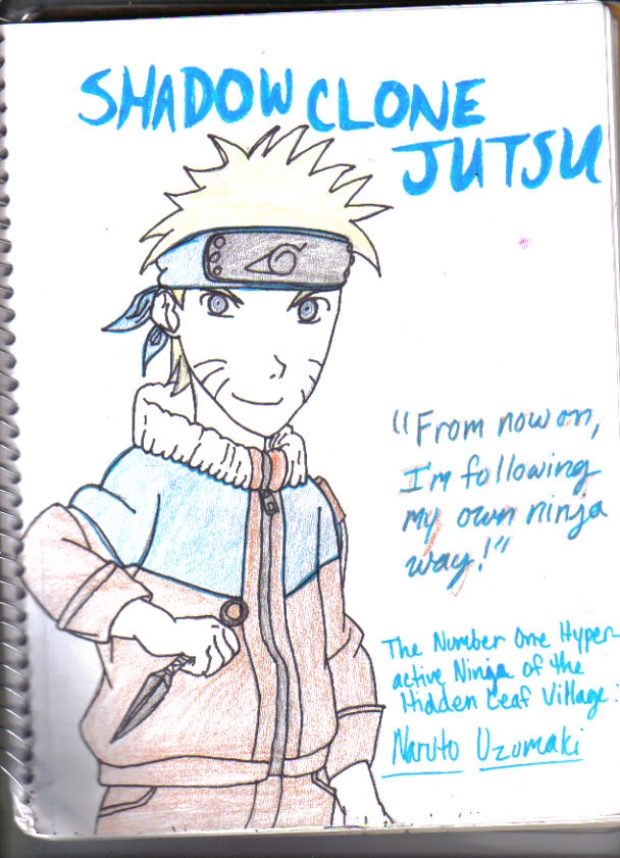 SHADOW CLONE
JUTSU
"From now on,
I'm following
my own ninja
way!"
The Number One Hyper-
active Ninja of the
Hidden Leaf Village:
Naruto Uzumaki